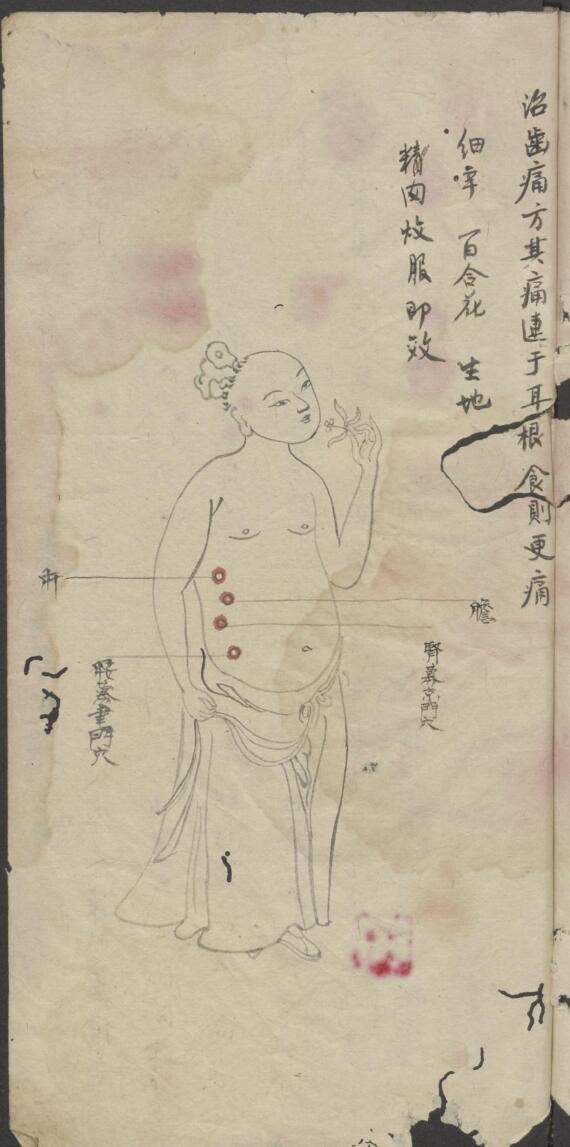 治齒痛方其痛連于耳根食則更痛
細辛 百合花 生地
精肉炆服即效
肝
膽
腎募京門穴
門穴